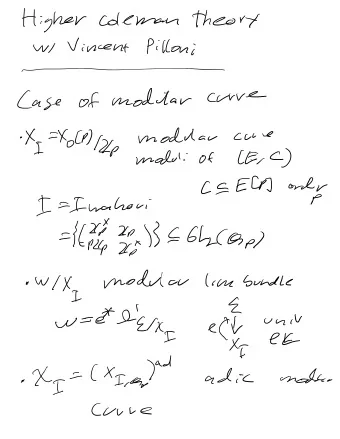 Higher Coleman theory
w/ Vincent Pilloni
Case of modular curve
· X_I = X_0(p)/Z_p modular curve
moduli of (E, C)
C ⊆ E[p] order p
I = Iwahori
= {(Z_p^× Z_p
pZ_p Z_p^×)} ⊆ GL_2(Q_p)
· ω/X_I modular line bundle
ω = e^* Ω^1_{E/X_I} e univ
X_I EC
· 𝒳_I = (X_{I,Q_p})^{ad} adic modular
curve